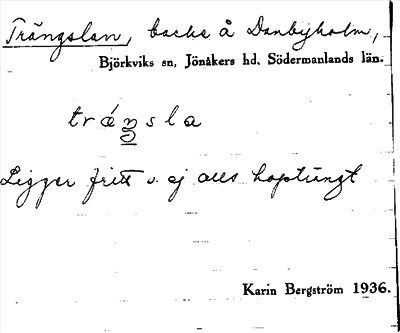 Trängslan, backe å Danbyholm,
Björkviks sn, Jönåkers hd, Södermanlands län.
Ligger fritt o. ej alls hopträngt
Karin Bergström 1936.